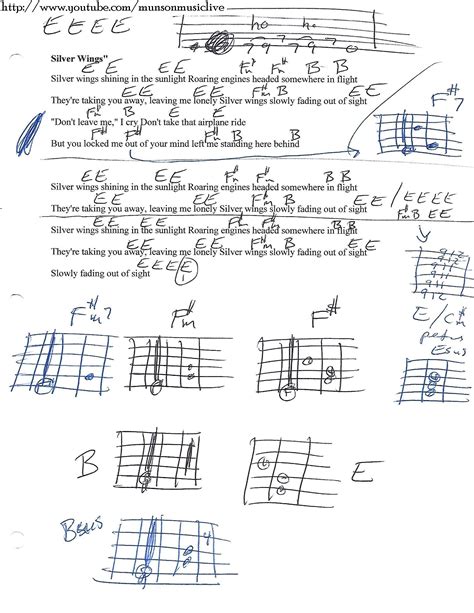 http://www.youtube.com/munsonmusiclive
E E E E
ho ho
7 9 7 9
Silver Wings"
E E E E F#m F#m B B
Silver wings shining in the sunlight Roaring engines headed somewhere in flight
E E E E F#m B E E
They're taking you away, leaving me lonely Silver wings slowly fading out of sight
F#m B E E
"Don't leave me," I cry Don't take that airplane ride
F#7
F#m F# B B
But you locked me out of your mind left me standing here behind
E E E E F#m F#m B B
Silver wings shining in the sunlight Roaring engines headed somewhere in flight
E E E E F#m B E E / E E E E
They're taking you away, leaving me lonely Silver wings slowly fading out of sight
F#m B E E
E E E E F#m F#m B B
Silver wings shining in the sunlight Roaring engines headed somewhere in flight
E E E E F#m B E E
They're taking you away, leaving me lonely Silver wings slowly fading out of sight
E E E E
Slowly fading out of sight
F#m7 F#m F#
E/C#m
Esus
B E
Bsus
4